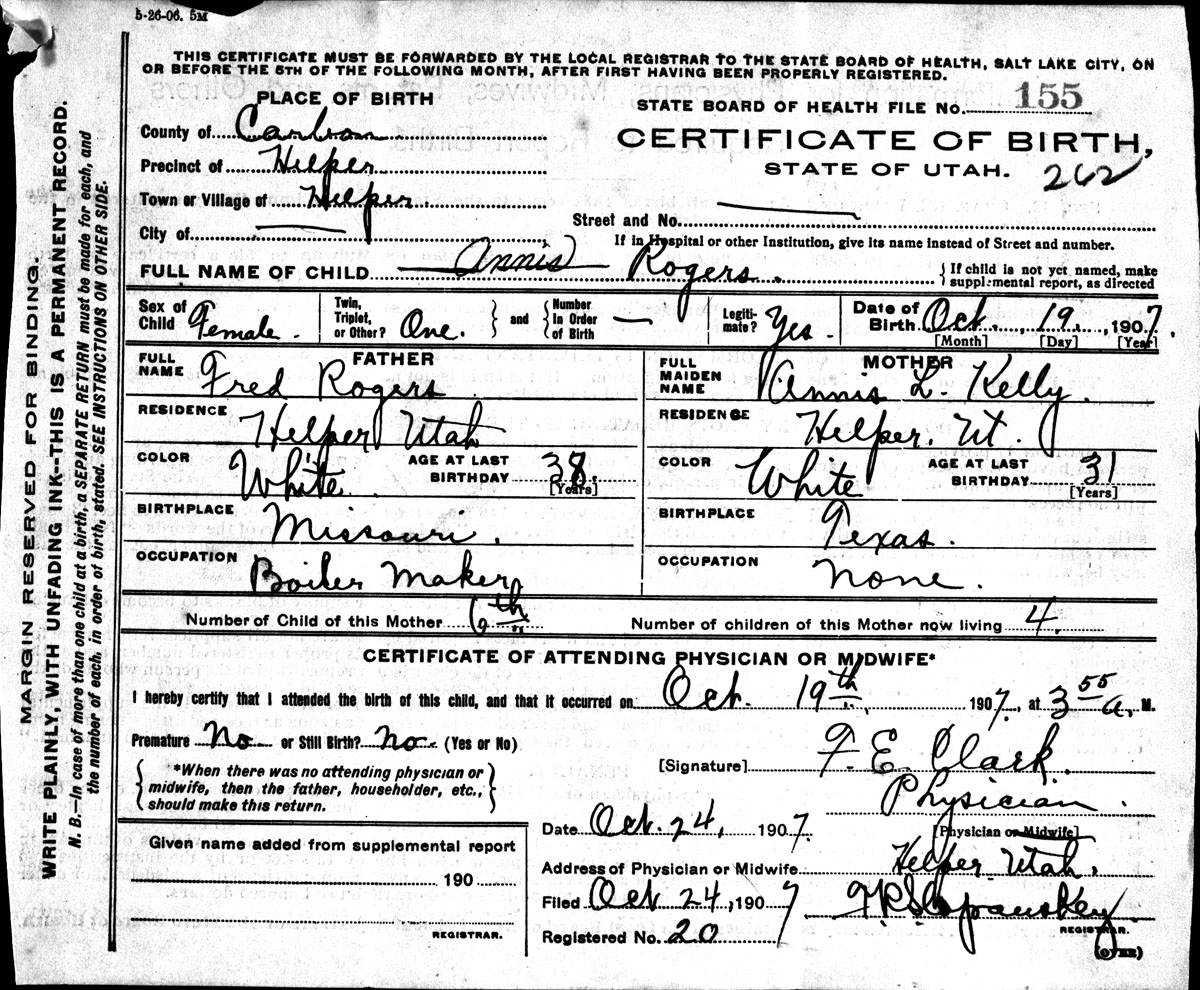 5-26-06. 5M
THIS CERTIFICATE MUST BE FORWARDED BY THE LOCAL REGISTRAR TO THE STATE BOARD OF HEALTH, SALT LAKE CITY, ON
OR BEFORE THE 5TH OF THE FOLLOWING MONTH, AFTER FIRST HAVING BEEN PROPERLY REGISTERED.
MARGIN RESERVED FOR BINDING.
WRITE PLAINLY, WITH UNFADING INK--THIS IS A PERMANENT RECORD.
N. B.—In case of more than one child at a birth, a SEPARATE RETURN must be made for each, and
the number of each, in order of birth, stated. SEE INSTRUCTIONS ON OTHER SIDE.
PLACE OF BIRTH
County of Carbon
Precinct of Helper
Town or Village of Helper
City of
STATE BOARD OF HEALTH FILE No. 155
CERTIFICATE OF BIRTH,
STATE OF UTAH. 262
Street and No.
If in Hospital or other Institution, give its name instead of Street and number.
FULL NAME OF CHILD Annis Rogers. } If child is not yet named, make
supplemental report, as directed
Sex of Child Female. Twin, Triplet, or Other? One. } and { Number In Order of Birth — Legitimate? Yes. Date of Birth Oct. 19, 1907.
[Month] [Day] [Year]
FATHER
FULL NAME Fred Rogers
RESIDENCE Helper Utah
COLOR White AGE AT LAST BIRTHDAY 38. [Years]
BIRTHPLACE Missouri.
OCCUPATION Boiler Maker
MOTHER
FULL MAIDEN NAME Annis L. Kelly.
RESIDENCE Helper. Ut.
COLOR White AGE AT LAST BIRTHDAY 31 [Years]
BIRTHPLACE Texas.
OCCUPATION None.
Number of Child of this Mother 6th Number of children of this Mother now living 4.
CERTIFICATE OF ATTENDING PHYSICIAN OR MIDWIFE*
I hereby certify that I attended the birth of this child, and that it occurred on Oct. 19th, 1907, at 3 55 a. M.
Premature No or Still Birth? No (Yes or No)
{ *When there was no attending physician or
midwife, then the father, householder, etc.,
should make this return. }
[Signature] F. E. Clark.
Physician.
[Physician or Midwife]
Date Oct. 24, 1907.
Address of Physician or Midwife Helper Utah.
Filed Oct 24, 1907
REGISTRAR.
Registered No. 20
(OVER)
Given name added from supplemental report
190
REGISTRAR.